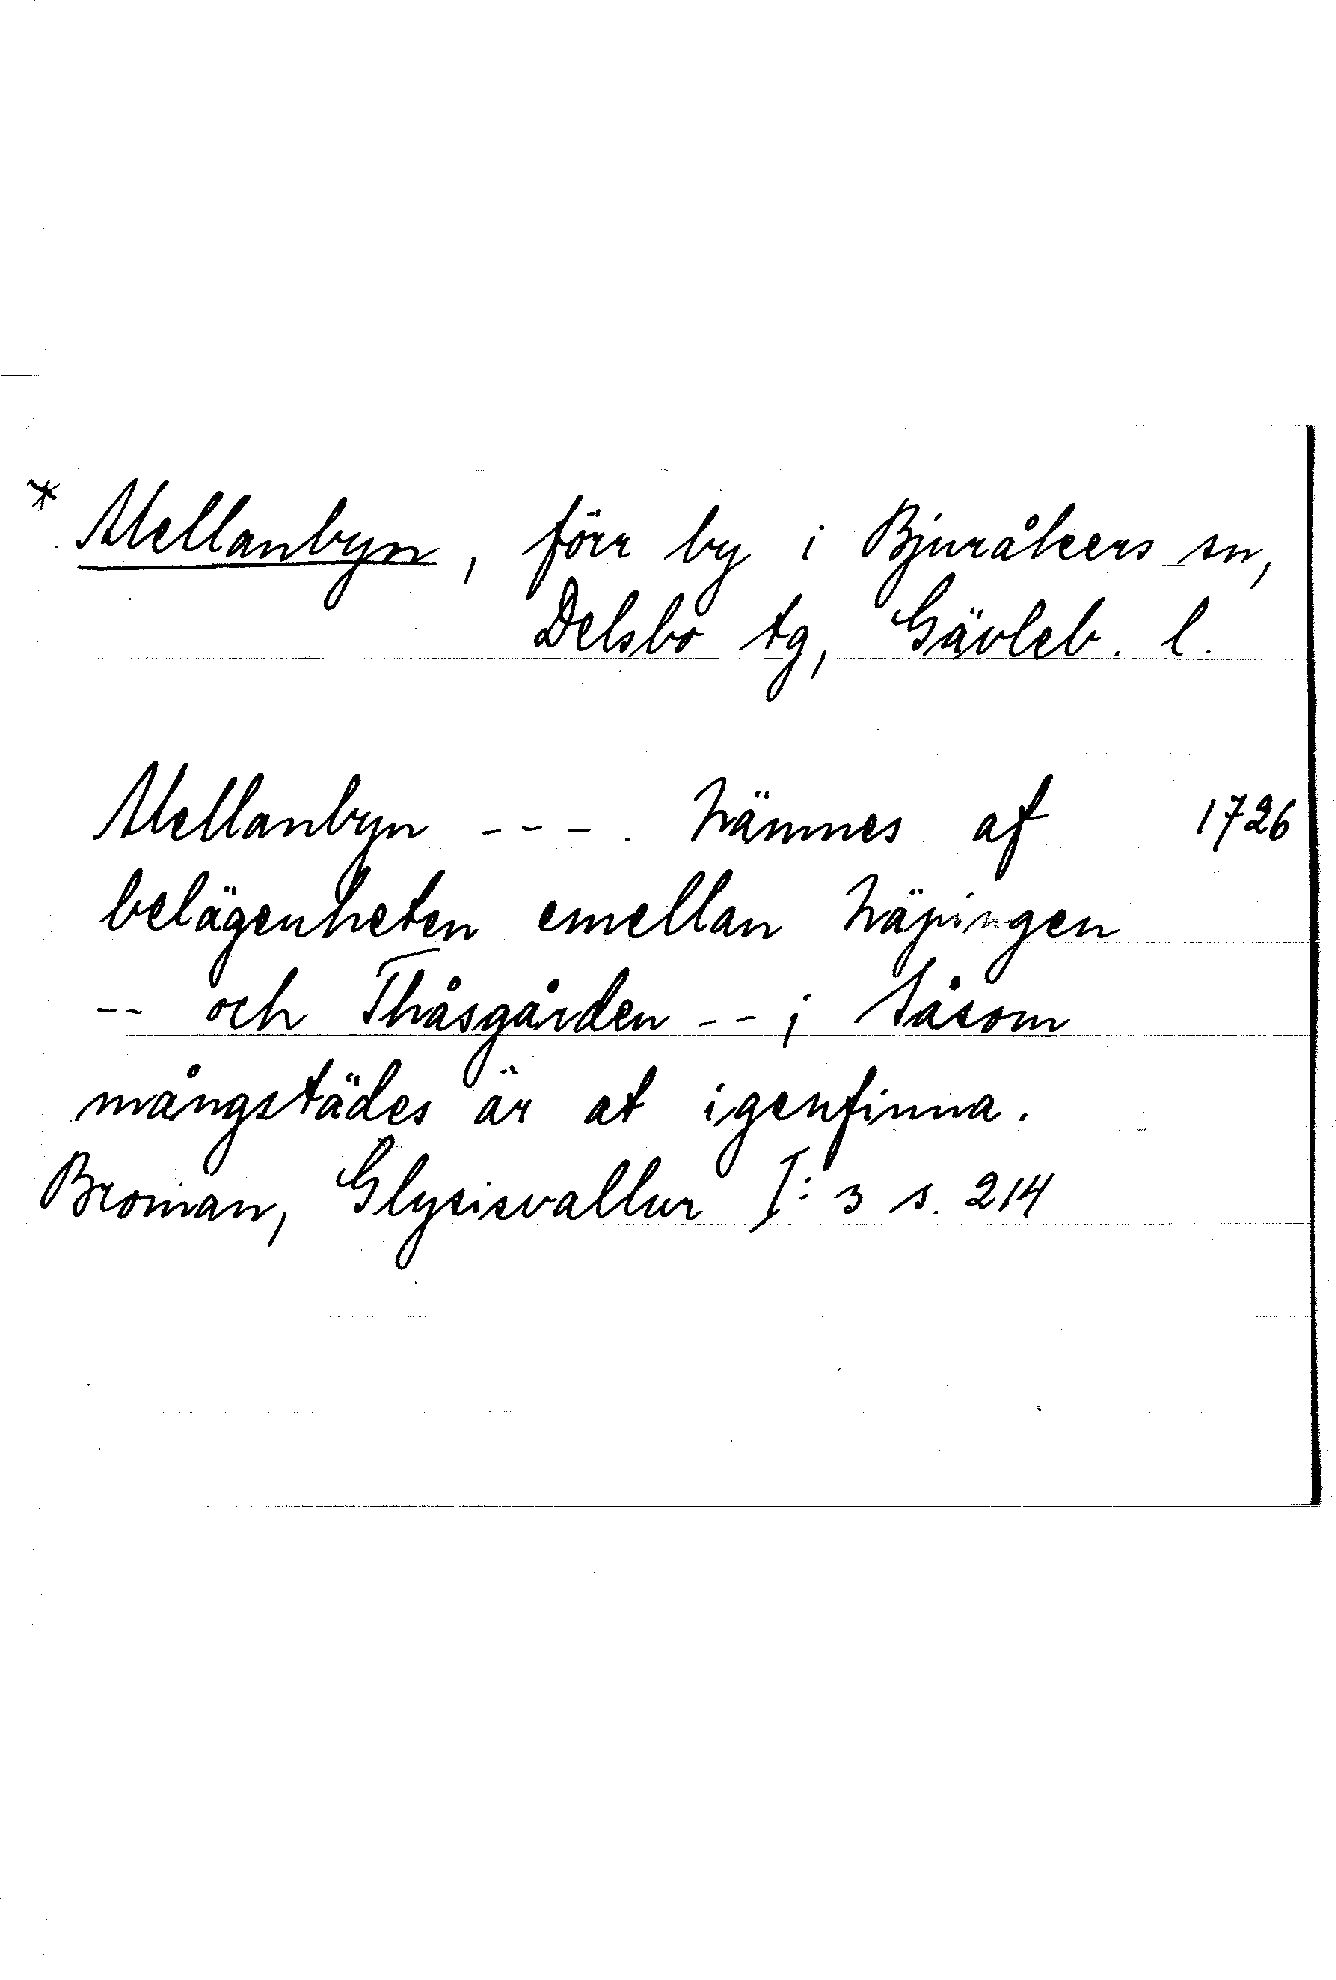 * Mellanbyn, förr by i Bjuråkers sn,
Delsbo tg, Gävleb. l.
Mellanbyn - - - . Nämnes af 1726
belägenheten emellan Näpingen
-- och Thåsgården -- ; såsom
mångstädes är at igenfinna.
Broman, Glysisvallur I: 3 s. 214